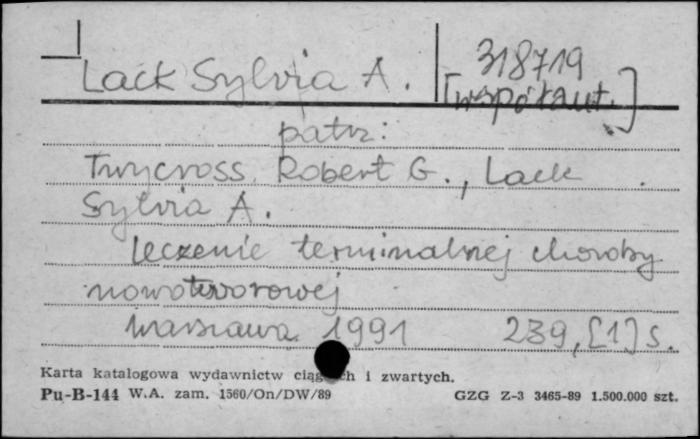 318719
Lack Sylvia A. [współaut.]
patrz:
Twycross Robert G., Lack
Sylvia A.
Leczenie terminalnej choroby
nowotworowej
Warszawa 1991 239, [1] s.
Karta katalogowa wydawnictw ciągłych i zwartych.
Pu-B-144 W.A. zam. 1560/On/DW/89 GZG Z-3 3465-89 1.500.000 szt.